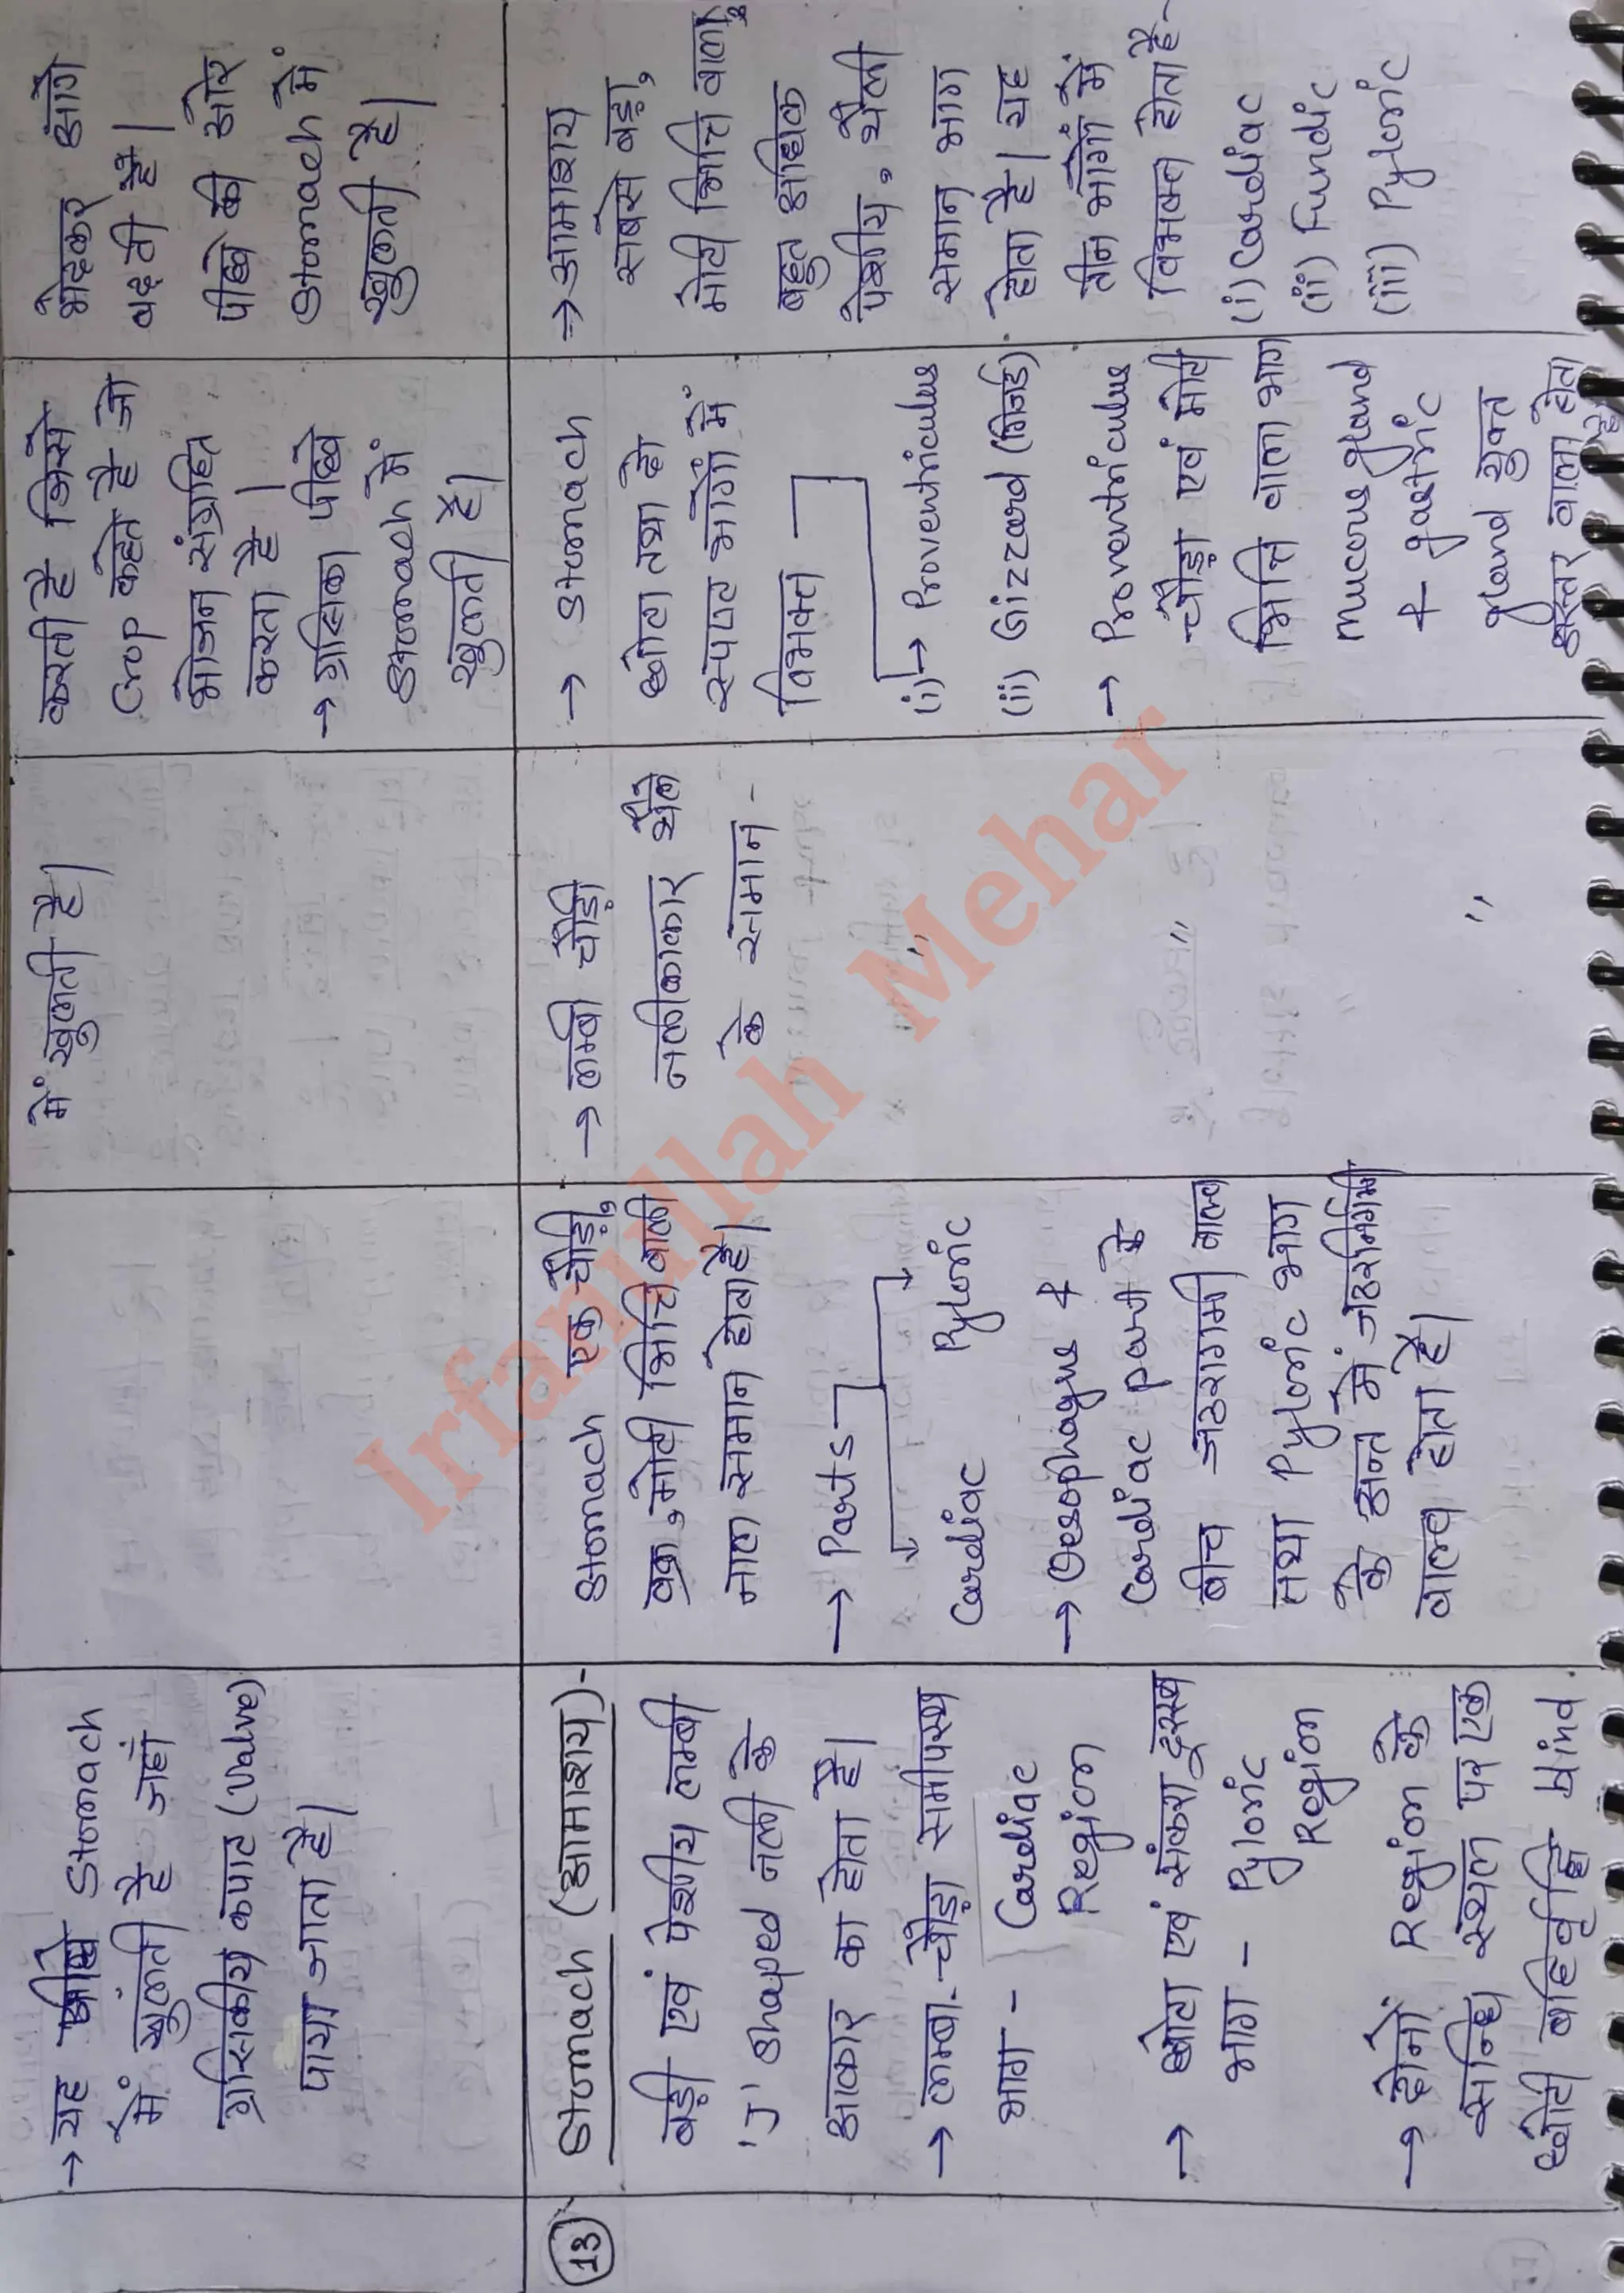 → यह पीछे Stomach
में खुलती है जहाँ
ग्रसिकीय कपाट (Valve)
पाया जाता है।
में खुलती है।
करती है जिसे
Crop कहते है जो
भोजन संग्रहित
करता है।
→ ग्रसिका पीछे
Stomach में
खुलती है।
भेदकर आगे
बढ़ती है।
पीछे की ओर
Stomach में
खुलती है।
13
Stomach (आमाशय)-
बड़ी एवं पेशीय लम्बी
'J' Shaped नली के
आकार का होता है।
→ लम्बा-चौड़ा समीपस्थ
भाग - Cardiac
Region
→ छोटा एवं संकरा दूरस्थ
भाग - Pyloric
Region
→ दोनों Region के
सन्धि स्थल पर एक
छोटी बहिर्वृद्धि Blind
Stomach एक चौड़ी,
वक्र, मोटी भित्ति वाली
नाल समान होता है।
→ Parts
Cardiac Pyloric
→ Oesophagus &
Cardiac part के
बीच जठरागमी वाल्व
तथा Pyloric भाग
के अन्त में जठरनिर्गमी
वाल्व होता है।
→ लम्बी चौड़ी
नलीकाकार थैले
के समान -
"
"
"
"
→ Stomach
छोटा तथा दो
स्पष्ट भागों में
विभक्त
(i) → Proventriculus
(ii) Gizzard (गिजर्ड)
→ Proventriculus
चौड़ा एवं मोटी
भित्ति वाला भाग
Mucous gland
& gastric
gland युक्त
अस्तर वाला होता
है
→ आमाशय
सबसे बड़ा,
मोटी भित्ति वाला,
बहुत अधिक
पेशीय, थैली
समान भाग
होता है। यह
तीन भागों में
विभक्त होता है-
(i) Cardiac
(ii) Fundic
(iii) Pyloric
Irfanullah Mehar